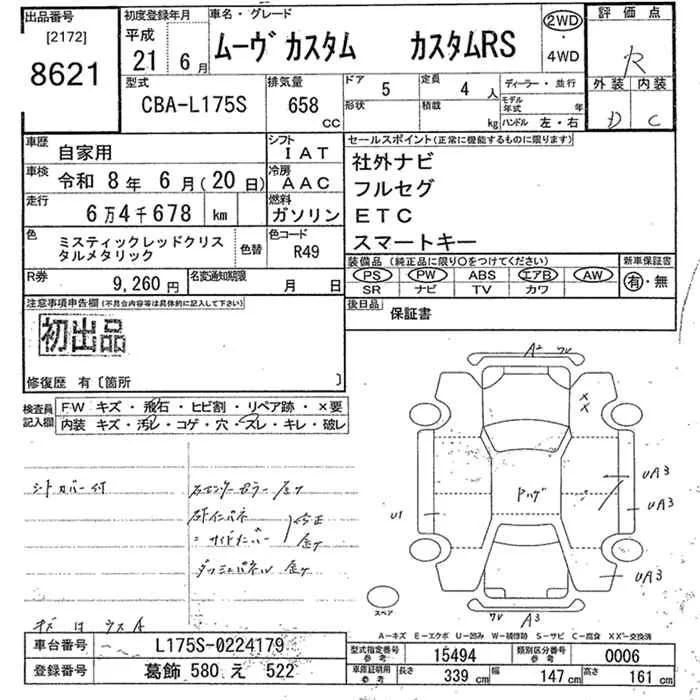 出品番号
[2172]
8621
初度登録年月
平成
21年 6月
車名・グレード
ムーヴ カスタム カスタムRS
2WD
・
4WD
評価点
R
外装 内装
D C
型式
CBA-L175S
排気量
658
CC
ドア 5
形状
定員 4 人
積載 kg
ディーラー・並行
モデル年式 年
ハンドル 左・右
車歴 自家用
シフト IAT
車検 令和 8年 6月(20日)
冷房 AAC
走行 6万4千678 km
燃料 ガソリン
色 ミスティックレッドクリス
タルメタリック
色替
色コード R49
R券 9,260円
名変通知期限 月 日
セールスポイント(正常に機能するものに限ります)
社外ナビ
フルセグ
ETC
スマートキー
装備品(純正品に限り○をつけてください)
PS PW ABS エアB AW
SR ナビ TV カワ
新車保証書
有・無
後日品 保証書
注意事項申告欄(不具合内容等は具体的に記入して下さい)
初出品
修復歴 有〔箇所 〕
検査員
記入欄
FW キズ・飛石・ヒビ割・リペア跡・×要
内装 キズ・汚レ・コゲ・穴・ズレ・キレ・破レ
シートカバー付
修正
A2 ワレ
×
×
UA3
UA3
UA3
U1
スペア
A3
A-キズ E-エクボ U-凹み W-補修跡 S-サビ C-腐食 X X-交換済
車台番号 L175S-0224179
登録番号 葛飾 580 え 522
型式指定番号
参考
15494
類別区分番号
参考
0006
車庫証明用
参考
長さ 339 cm 幅 147 cm 高さ 161 cm